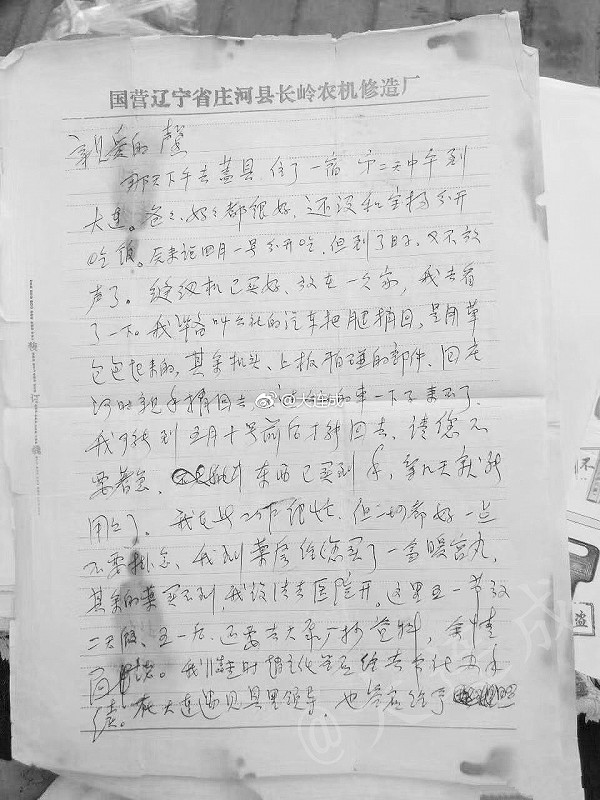 国营辽宁省庄河县长岭农机修造厂
亲爱的馨
那天下午去盖县,住了一宿,第二天中午到
大连。爸爸、妈妈都很好,还没和宝杨分开
吃饭。原来说四月一号分开吃,但到了日子,又不放
声了。缝纫机已买好,放在一久家,我去看
了一下。我准备叫公社的汽车把腿捎回,是用草
包包起来的,其余机头、上板怕碰的部件,回庄
河时亲手捎回去,的车一下子来不了。
我可能到五月十号前后才能回去,请您不
要着急。东西已买到手,拿几天就能
用上了。我在此工作很忙,但一切都好一点
不要挂念。我到药房给您买了一盒暖宫丸,
其余的药买不到,我设法去医院开。这里五一节放
二天假,五一后,还要去大东厂抄资料,余情
面谈。我们走时
续。在大连遇见县里领导,也答应给予
@大连成
@大连成
装订线